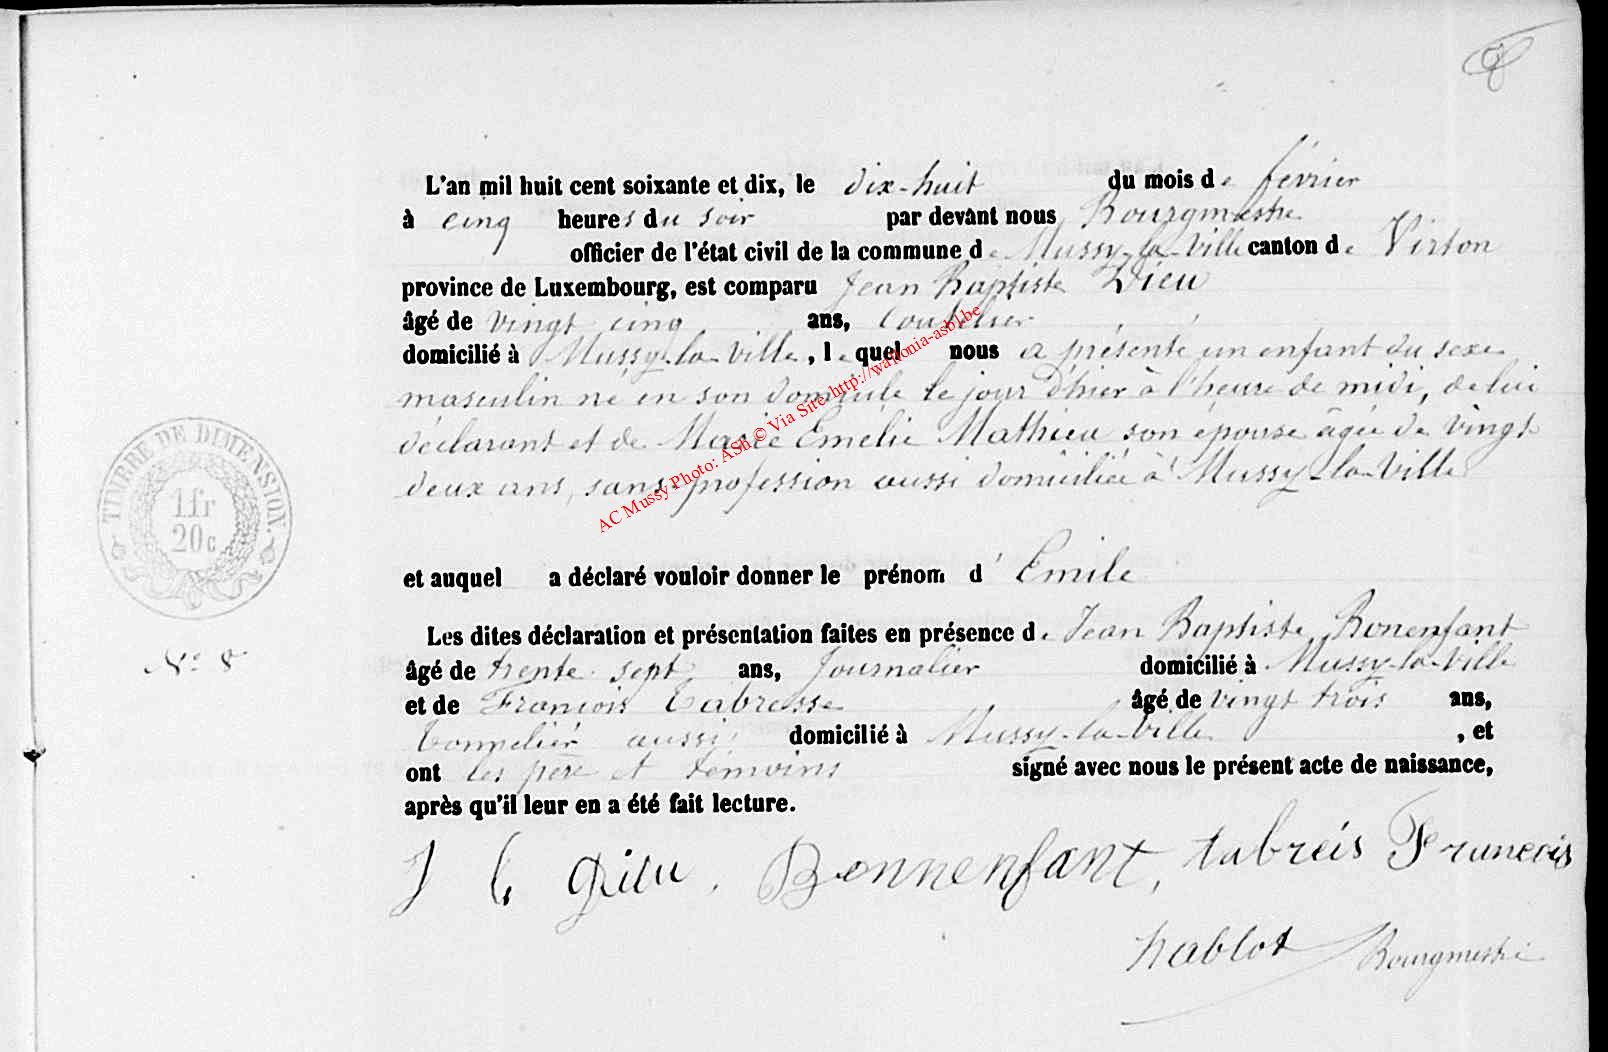 L'an mil huit cent soixante et dix, le dix-huit du mois de février
à cinq heures du soir par devant nous Bourgmestre
officier de l'état civil de la commune de Mussy-la-Ville canton de Virton
province de Luxembourg, est comparu Jean Baptiste Dieu
âgé de vingt cinq ans,
domicilié à Mussy-la-Ville, lequel nous a présenté un enfant du sexe
masculin né en son domicile le jour d'hier à l'heure de midi, de lui
déclarant et de Marie Emélie Mathieu son épouse âgée de vingt
deux ans, sans profession aussi domiciliée à Mussy-la-Ville
AC Mussy Photo: ASh © Via Site http://wallonia-asbl.be
TIMBRE DE DIMENSION.
1 fr
20 c
et auquel a déclaré vouloir donner le prénom d' Emile
Les dites déclaration et présentation faites en présence de Jean Baptiste Bonenfant
N° 8
âgé de trente sept ans, Journalier domicilié à Mussy-la-Ville
et de François Tabresse âgé de vingt trois ans,
Tonnelier aussi domicilié à Mussy-la-Ville, et
ont les père et témoins signé avec nous le présent acte de naissance,
après qu'il leur en a été fait lecture.
J b Dieu. Bonnenfant, tabreis Francois
hablot Bourgmestre